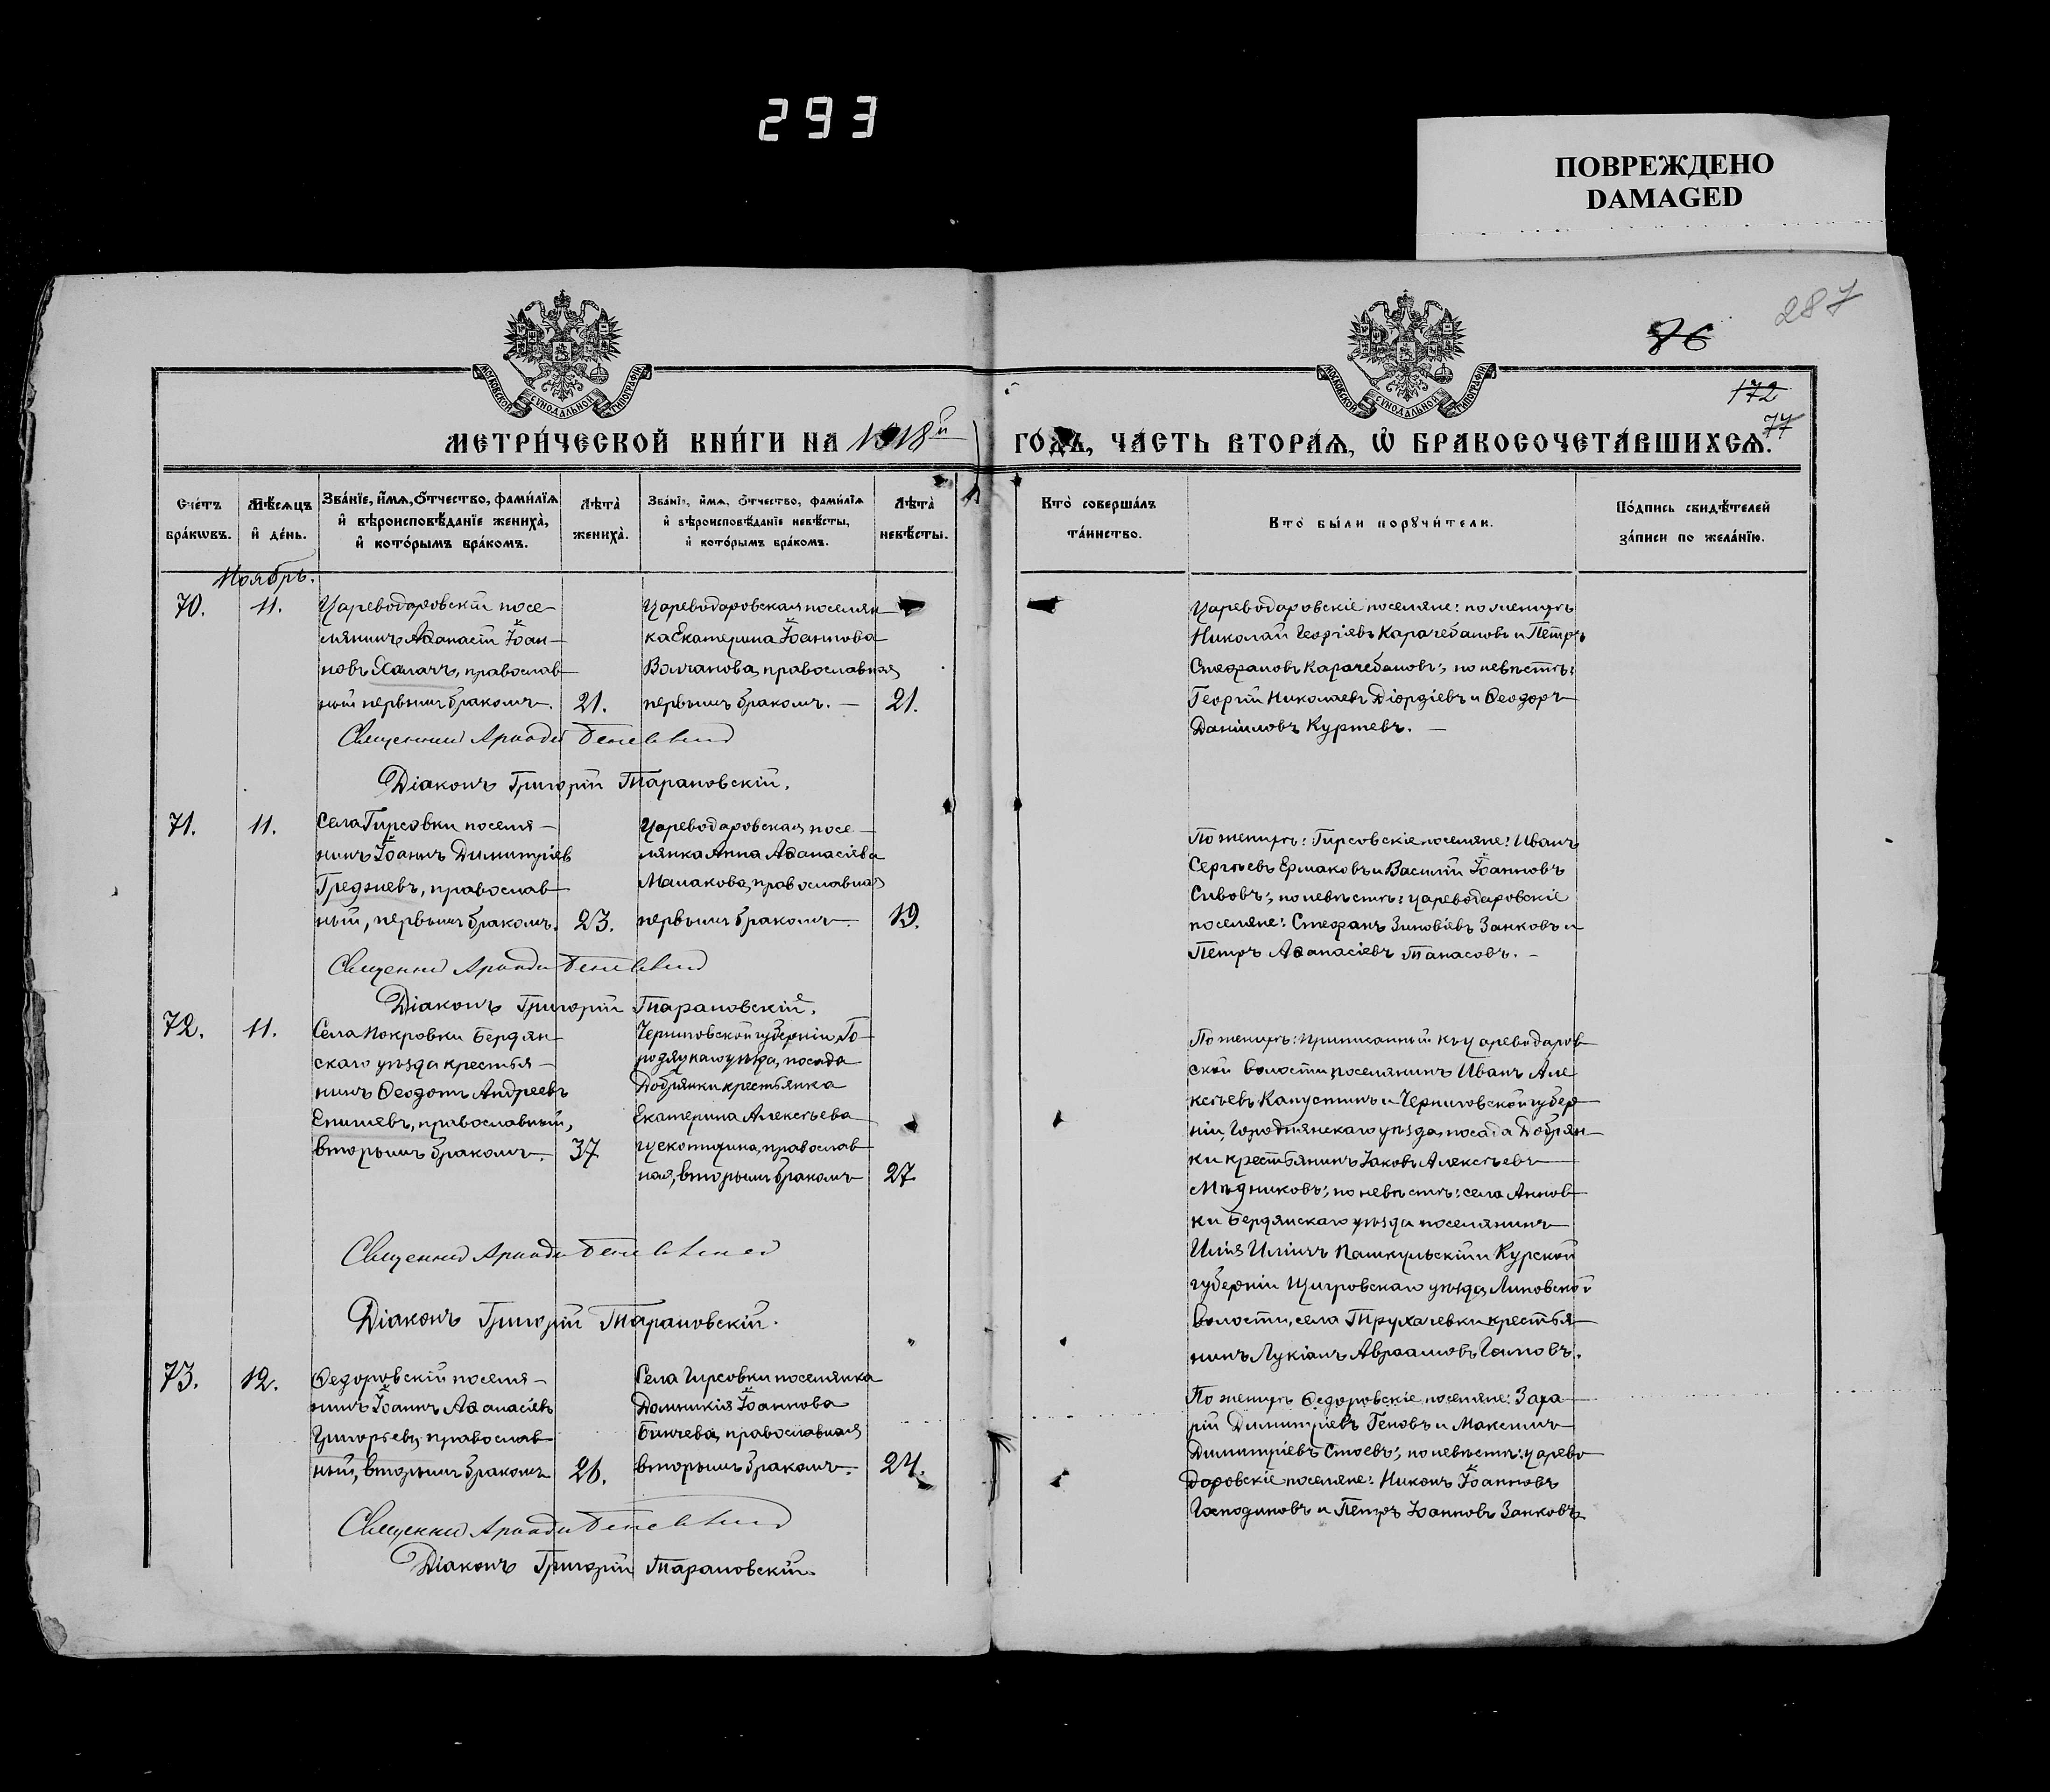 293
ПОВРЕЖДЕНО
DAMAGED
287
76
172
77
МОСКОВСКОЙ СѴНОДАЛЬНОЙ ТИПОГРАФІИ
МОСКОВСКОЙ СѴНОДАЛЬНОЙ ТИПОГРАФІИ
МЕТРИ́ЧЕСКОЙ КНИ́ГИ НА 1918й ГО́ДЪ, ЧАСТЬ ВТОРА́Ѧ, Ѡ҆ БРАКОСОЧЕТА́ВШИХСѦ.
Сче́тъ
бра́кωвъ.
Мѣ́сѧцъ
и҆ де́нь.
Зва́нїе, и҆́мѧ, ѻ҆́тчество, фами́лїѧ
и҆ вѣроисповѣ́данїе жениха̀,
и҆ кото́рымъ бра́комъ.
Лѣта̀
жениха̀.
Зва́нїе, и҆́мѧ, ѻ҆́тчество, фами́лїѧ
и҆ вѣроисповѣ́данїе невѣ́сты,
и҆ кото́рымъ бра́комъ.
Лѣта̀
невѣ́сты.
Кто̀ соверша́лъ
та́инство.
Кто̀ бы́ли порꙋчи́тели.
По́дпись свидѣ́телей
за́писи по жела́нїю.
Ноябрь.
70.
11.
Цареводаровскій посе-
лянинъ Аѳанасій Іоан-
новъ Халачъ, православ-
ный первымъ бракомъ.
21.
Цареводаровская поселян-
ка Екатерина Іоаннова
Волчанова, православная
первымъ бракомъ. —
21.
Цареводаровскіе поселяне: по женихѣ
Николай Георгіевъ Карачебановъ и Петръ
Стефановъ Карачебановъ; по невѣстѣ:
Георгій Николаевъ Діордіевъ и Ѳеодоръ
Даніиловъ Куртевъ. —
Священник
Діаконъ Григорій Тарановскій.
71.
11.
Села Гирсовки поселя-
нинъ Іоаннъ Димитріев
Греджевъ, православ-
ный, первымъ бракомъ.
23.
Цареводаровская посе-
лянка Анна Аѳанасіева
Малакова, православная
первымъ бракомъ.
19.
По женихѣ: Гирсовскіе поселяне: Иванъ
Сергѣевъ Ермаковъ и Василій Іоанновъ
Сивовъ; по невѣстѣ: цареводаровскіе
поселяне: Стефанъ Зиновіевъ Занковъ и
Петръ Аѳанасіевъ Танасовъ. -
Священник
Діаконъ Григорій Тарановскій.
72.
11.
Села Покровки Бердян-
скаго уѣзда крестья-
нинъ Ѳеодотъ Андреевъ
Епишевъ, православный,
вторымъ бракомъ.
37
Черниговской губерніи Го-
родяцкаго уѣзда, посада
Добрянки крестьянка
Екатерина Алексѣева
православ-
ная, вторымъ бракомъ
27
По женихѣ: приписанный къ цареводаров-
ской волости поселянинъ Иванъ Але
ксѣевъ Капустинъ и Черниговской губер-
ніи, Городнянскаго уѣзда, посада Добрян-
ки крестьянинъ Іаковъ Алексѣевъ
Мѣдниковъ; по невѣстѣ: села Аннов-
ки Бердянскаго уѣзда поселянинъ
Илія Иліичъ Пашкульскій и Курской
губерніи Щигровскаго уѣзда, Липовской
волости, села Трухачевки крестья-
нинъ Лукіанъ Авраамовъ Гамовъ.
Священник
Діаконъ Григорій Тарановскій.
73.
12.
Ѳедоровскій поселя-
нинъ Іоаннъ Аѳанасіевъ
Григорьевъ, православ-
ный, вторымъ бракомъ
26.
Села Гирсовки поселянка
Домникія Іоаннова
Бинчева, православная
вторымъ бракомъ.
24.
По женихѣ Ѳедоровскіе поселяне: Заха-
рій Димитріевъ Геновъ и Максимъ
Димитріевъ Стоевъ; по невѣстѣ: царево-
даровскіе поселяне: Никонъ Іоанновъ
Господиновъ и Петръ Іоанновъ Занковъ
Священник
Діаконъ Григорій Тарановскій.